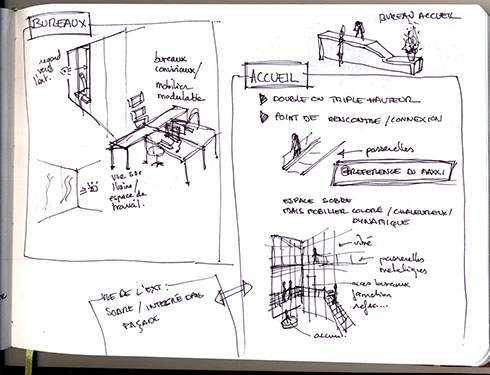 BUREAUX
regard
vers
l'ext.
bureaux
conviviaux/
mobilier
modulable
vue sur
espace de
travail.
VUE DE L'EXT:
SOBRE / INTEGRE DANS
FAÇADE
BUREAU ACCUEIL
ACCUEIL
DOUBLE OU TRIPLE HAUTEUR
POINT DE RENCONTRE / CONNEXION
passerelles
REFERENCE DU MAXXI
ESPACE SOBRE
MAIS MOBILIER COLORÉ / CHALEUREUX /
DYNAMIQUE
vitré
passerelles
metalliques
acces bureaux
formation
accueil